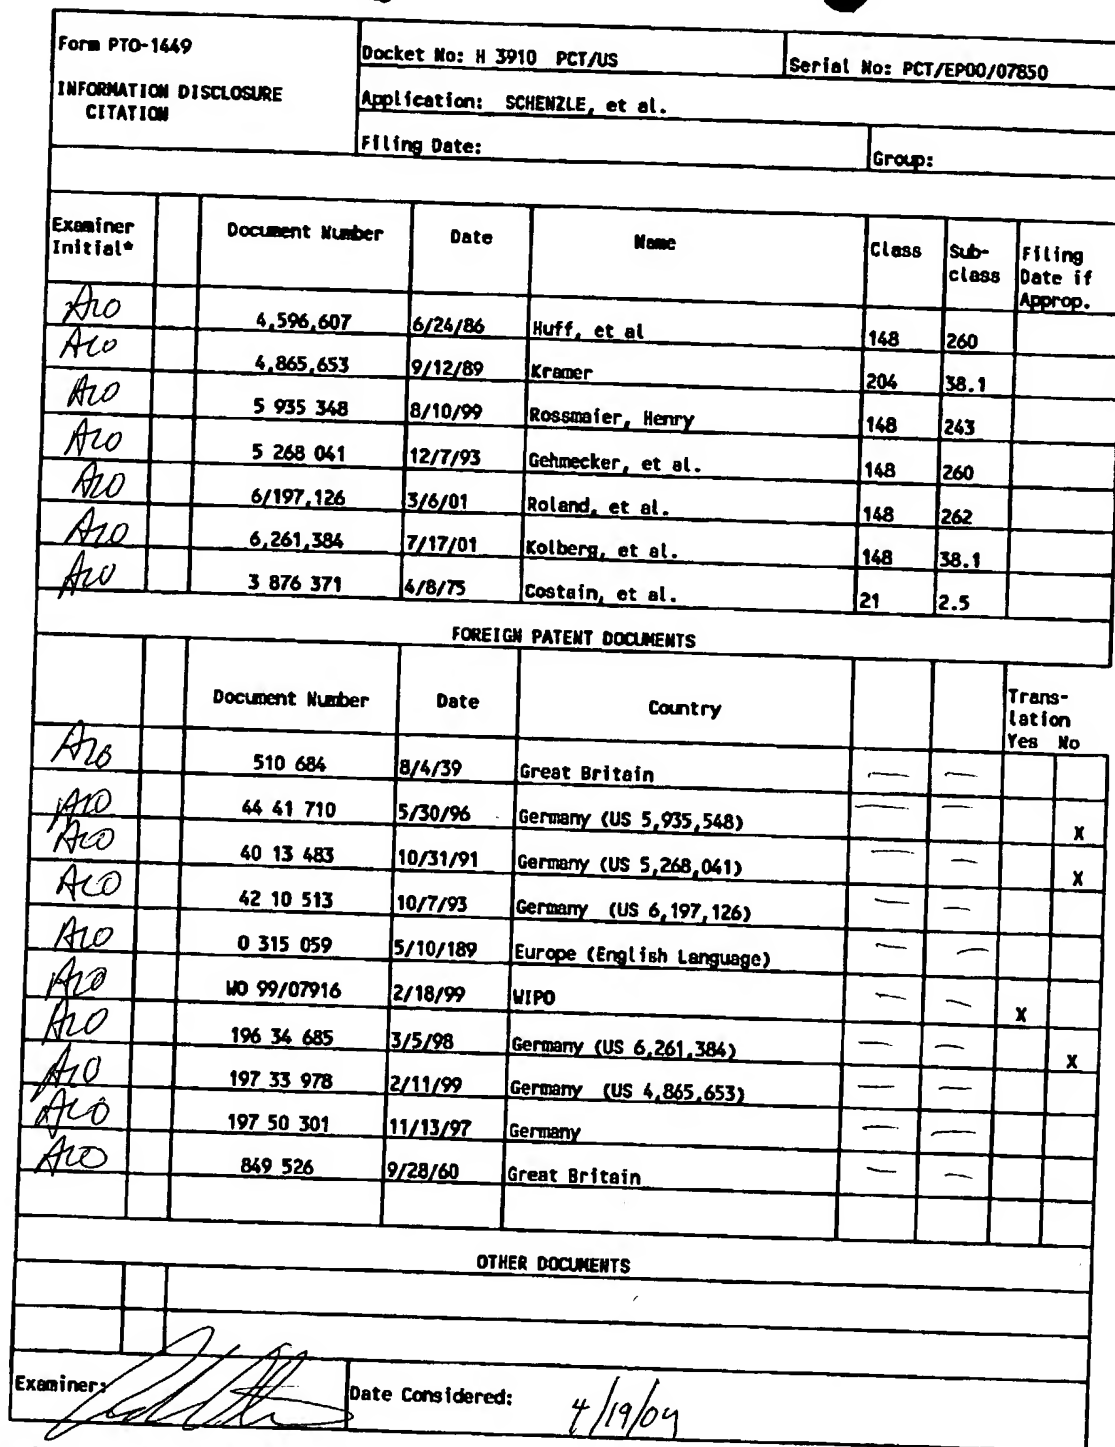 Form PTO-1449
INFORMATION DISCLOSURE
CITATION
Docket No: H 3910 PCT/US
Serial No: PCT/EP00/07850
Application: SCHENZLE, et al.
Filing Date:
Group:
Examiner Initial* Document Number Date Name Class Sub-class Filing Date if Approp.
4,596,607 6/24/86 Huff, et al 148 260
4,865,653 9/12/89 Kramer 204 38.1
5 935 348 8/10/99 Rossmaier, Henry 148 243
5 268 041 12/7/93 Gehmecker, et al. 148 260
6/197,126 3/6/01 Roland, et al. 148 262
6,261,384 7/17/01 Kolberg, et al. 148 38.1
3 876 371 4/8/75 Costain, et al. 21 2.5
FOREIGN PATENT DOCUMENTS
Document Number Date Country Trans-lation Yes No
510 684 8/4/39 Great Britain — —
44 41 710 5/30/96 Germany (US 5,935,548) — — X
40 13 483 10/31/91 Germany (US 5,268,041) — — X
42 10 513 10/7/93 Germany (US 6,197,126) — —
0 315 059 5/10/189 Europe (English Language) — —
WO 99/07916 2/18/99 WIPO — — X
196 34 685 3/5/98 Germany (US 6,261,384) — — X
197 33 978 2/11/99 Germany (US 4,865,653) — —
197 50 301 11/13/97 Germany — —
849 526 9/28/60 Great Britain — —
OTHER DOCUMENTS
Examiner:
Date Considered: 4/19/04